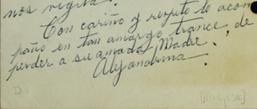 nos
Con cariño y respeto le acom
paño en tan amargo trance, de
perder a su amada Madre.
Alejandrina